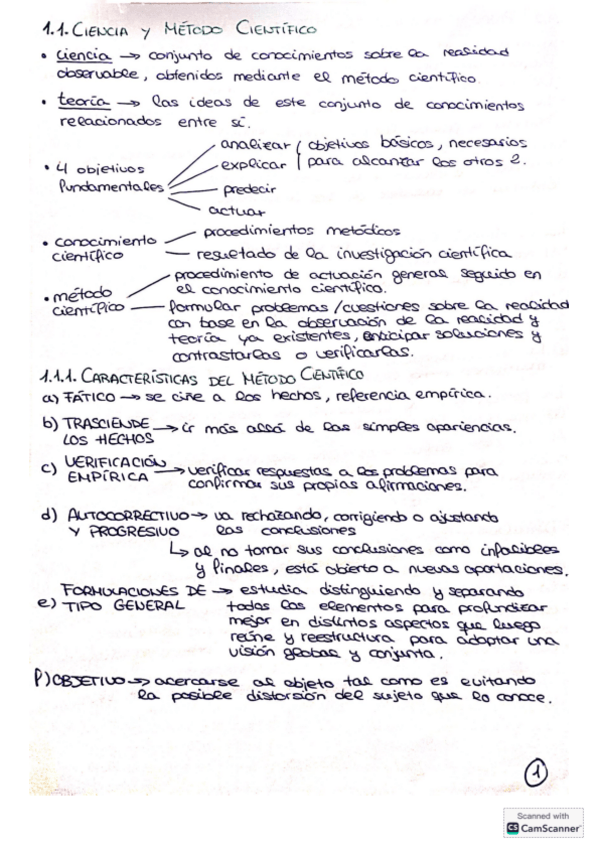 1.1. CIENCIA Y MÉTODO CIENTÍFICO
• ciencia → conjunto de conocimientos sobre la realidad
observable, obtenidos mediante el método científico.
• teoría → las ideas de este conjunto de conocimientos
relacionados entre sí.
• 4 objetivos
fundamentales
analizar
explicar
objetivos básicos, necesarios
para alcanzar los otros 2.
predecir
actuar
• conocimiento
científico
procedimientos metódicos
resultado de la investigación científica
• método
científico
procedimiento de actuación general seguido en
el conocimiento científico.
formular problemas/cuestiones sobre la realidad
con base en la observación de la realidad y
teoría ya existentes, anticipar soluciones y
contrastarlas o verificarlas.
1.1.1. CARACTERÍSTICAS DEL MÉTODO CIENTÍFICO
a) FÁTICO → se ciñe a los hechos, referencia empírica.
b) TRASCIENDE
LOS HECHOS → ir más allá de las simples apariencias.
c) VERIFICACIÓN
EMPÍRICA → verificar respuestas a los problemas para
confirmar sus propias afirmaciones.
d) AUTOCORRECTIVO → va rechazando, corrigiendo o ajustando
Y PROGRESIVO las conclusiones
↳ al no tomar sus conclusiones como infalibles
y finales, está abierto a nuevas aportaciones.
e) FORMULACIONES DE → estudia distinguiendo y separando
TIPO GENERAL todas los elementos para profundizar
mejor en distintos aspectos que luego
reúne y reestructura para adoptar una
visión global y conjunta.
f) OBJETIVO → acercarse al objeto tal como es evitando
la posible distorsión del sujeto que lo conoce.
1
Scanned with
CS CamScanner